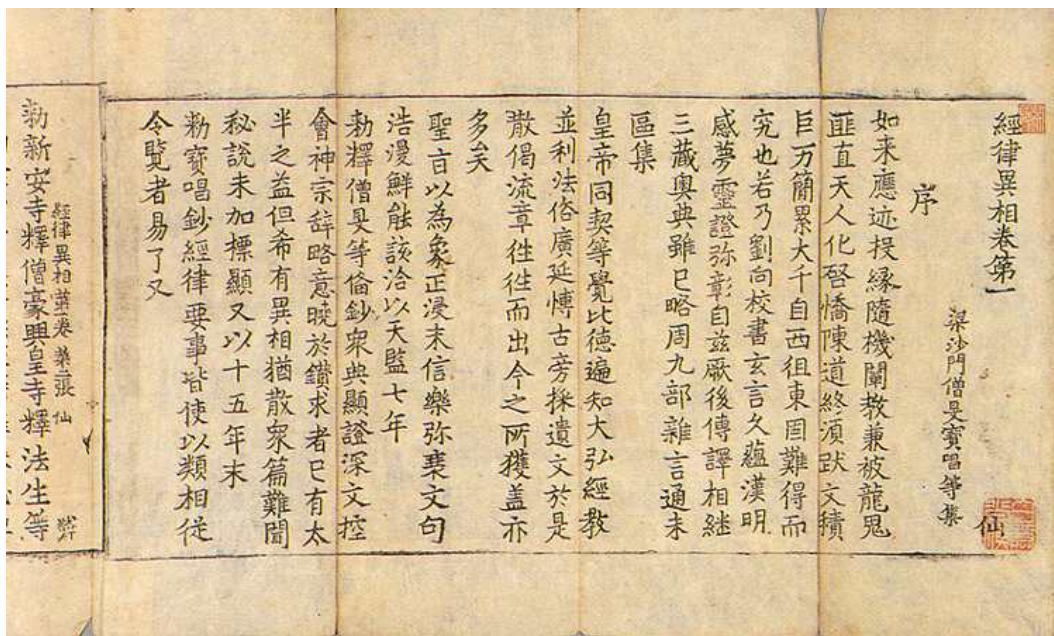 經律異相卷第一
仙
梁沙門僧旻寶唱等集
序
如来應迹投緣隨機闡教兼被龍鬼
匪直天人化啓憍陳道終須跋文積
巨万簡累大千自西徂東固難得而
究也若乃劉向校書玄言久蘊漢明
感夢靈證弥彰自兹厥後傳譯相継
三藏奥典雖已略周九部雜言通未
區集
皇帝同契等覺比德遍知大弘經教
並利法俗廣延愽古旁採遺文於是
散偈流章徃徃而出今之所獲盖亦
多矣
聖旨以為象正浸末信樂弥衰文句
浩漫鮮能該洽以天監七年
勑釋僧旻等俻鈔衆典顯證深文控
會神宗辞略意曉於鑽求者已有太
半之益但希有異相猶散衆篇難聞
秘說未加標顯又以十五年末
勑寶唱鈔經律要事皆使以類相従
令覽者易了又
經律異相第一卷 第二張 仙
勑新安寺釋僧豪興皇寺釋法生等